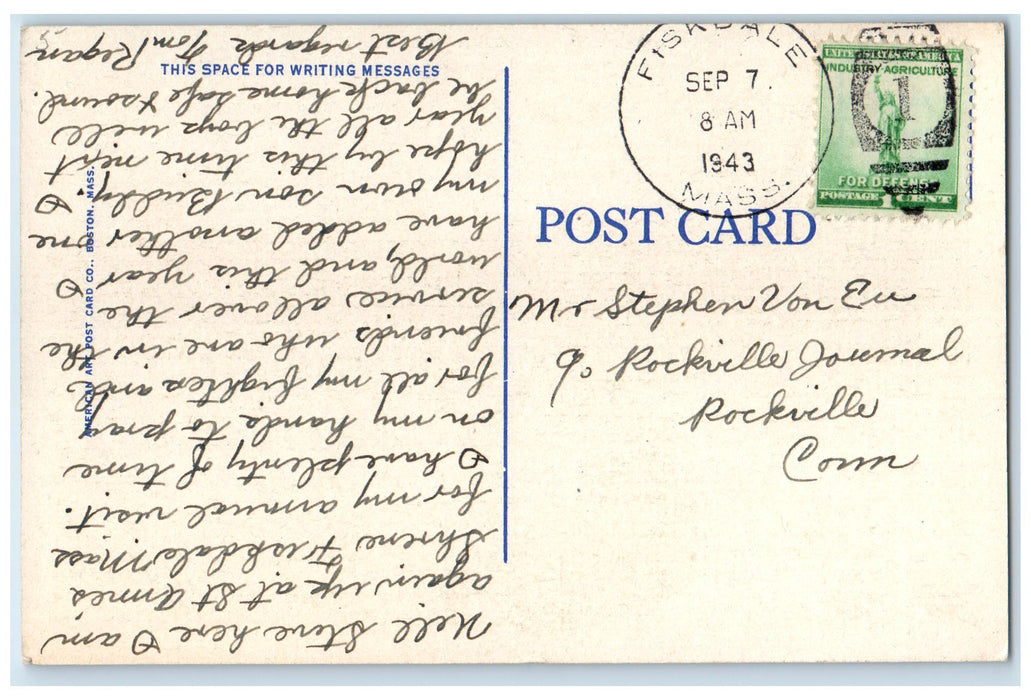 THIS SPACE FOR WRITING MESSAGES
Well Steve here I am
again up at St Anne's
Shrine Fiskdale Mass
for my annual visit.
I have plenty of time
on my hands to pray
for all my fightes and
friends who are in the
service all over the
world and this year I
have added another one
my own son Buddy. I
hope by this time next
year all the boys will
be back home safe & sound.
Best regards Tom Regan
AMERICAN ART POST CARD CO., BOSTON, MASS.
FISKDALE
SEP 7.
8 AM
1943
MASS.
UNITED STATES OF AMERICA
INDUSTRY AGRICULTURE
1
FOR DEFENSE
POSTAGE 1 CENT
POST CARD
Mr Stephen Von Eu
c/o Rockville Journal
Rockville
Conn